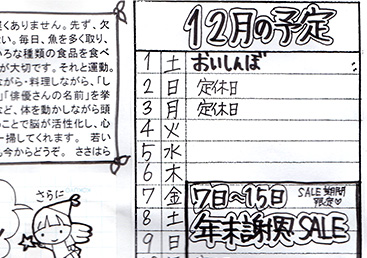 くありません。先ず、欠
ない。毎日、魚を多く取り、
いろな種類の食品を食べ
が大切です。それと運動。
ながら・料理しながら、「し
」「俳優さんの名前」を挙
など、体を動かしながら頭
ことで脳が活性化し、心
一掃してくれます。 若い
も今からどうぞ。 ささはら
さらに
12月の予定
1 土 おいしんぼ
2 日 定休日
3 月 定休日
4 火
5 水
6 木
7 金 7日〜15日 SALE期間
限定♡
8 土 年末謝恩SALE
9 日